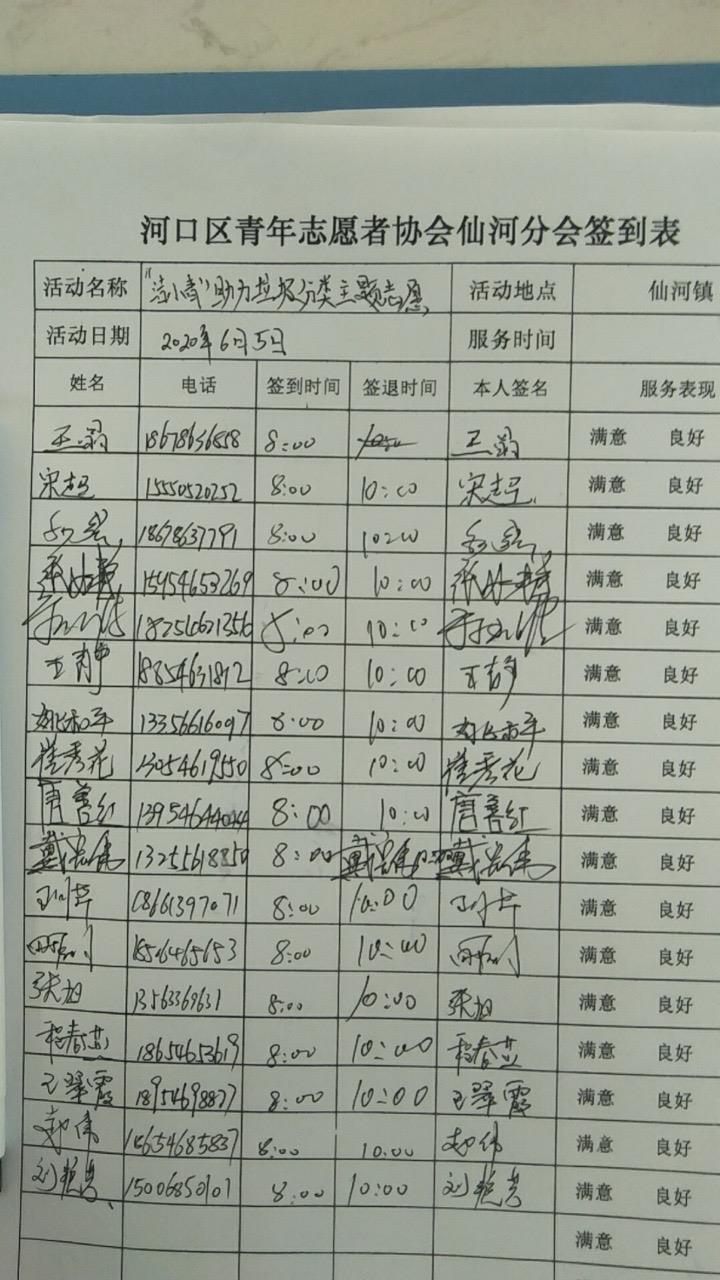 河口区青年志愿者协会仙河分会签到表
活动名称 助力垃圾分类主题志愿 活动地点 仙河镇
活动日期 2020年6月5日 服务时间
姓名 电话 签到时间 签退时间 本人签名 服务表现
18678636858 8:00 满意 良好
宋超 15550520252 8:00 10:00 宋超 满意 良好
18678637791 8:00 10:00 满意 良好
15954653269 8:00 10:00 满意 良好
18254621356 8:00 10:00 满意 良好
王静 18854631812 8:00 10:00 王静 满意 良好
13356616097 8:00 10:00 满意 良好
崔秀花 13054619550 8:00 10:00 崔秀花 满意 良好
唐善红 13954644044 8:00 10:00 唐善红 满意 良好
13255618850 8:00 满意 良好
18661397071 8:00 10:00 满意 良好
18506465653 8:00 10:00 满意 良好
张旭 13563369631 8:00 10:00 张旭 满意 良好
程春燕 18654653619 8:00 10:00 程春燕 满意 良好
王翠霞 18954698877 8:00 10:00 王翠霞 满意 良好
赵伟 18654685837 8:00 10:00 赵伟 满意 良好
刘艳芳 15006850101 8:00 10:00 刘艳芳 满意 良好
满意 良好